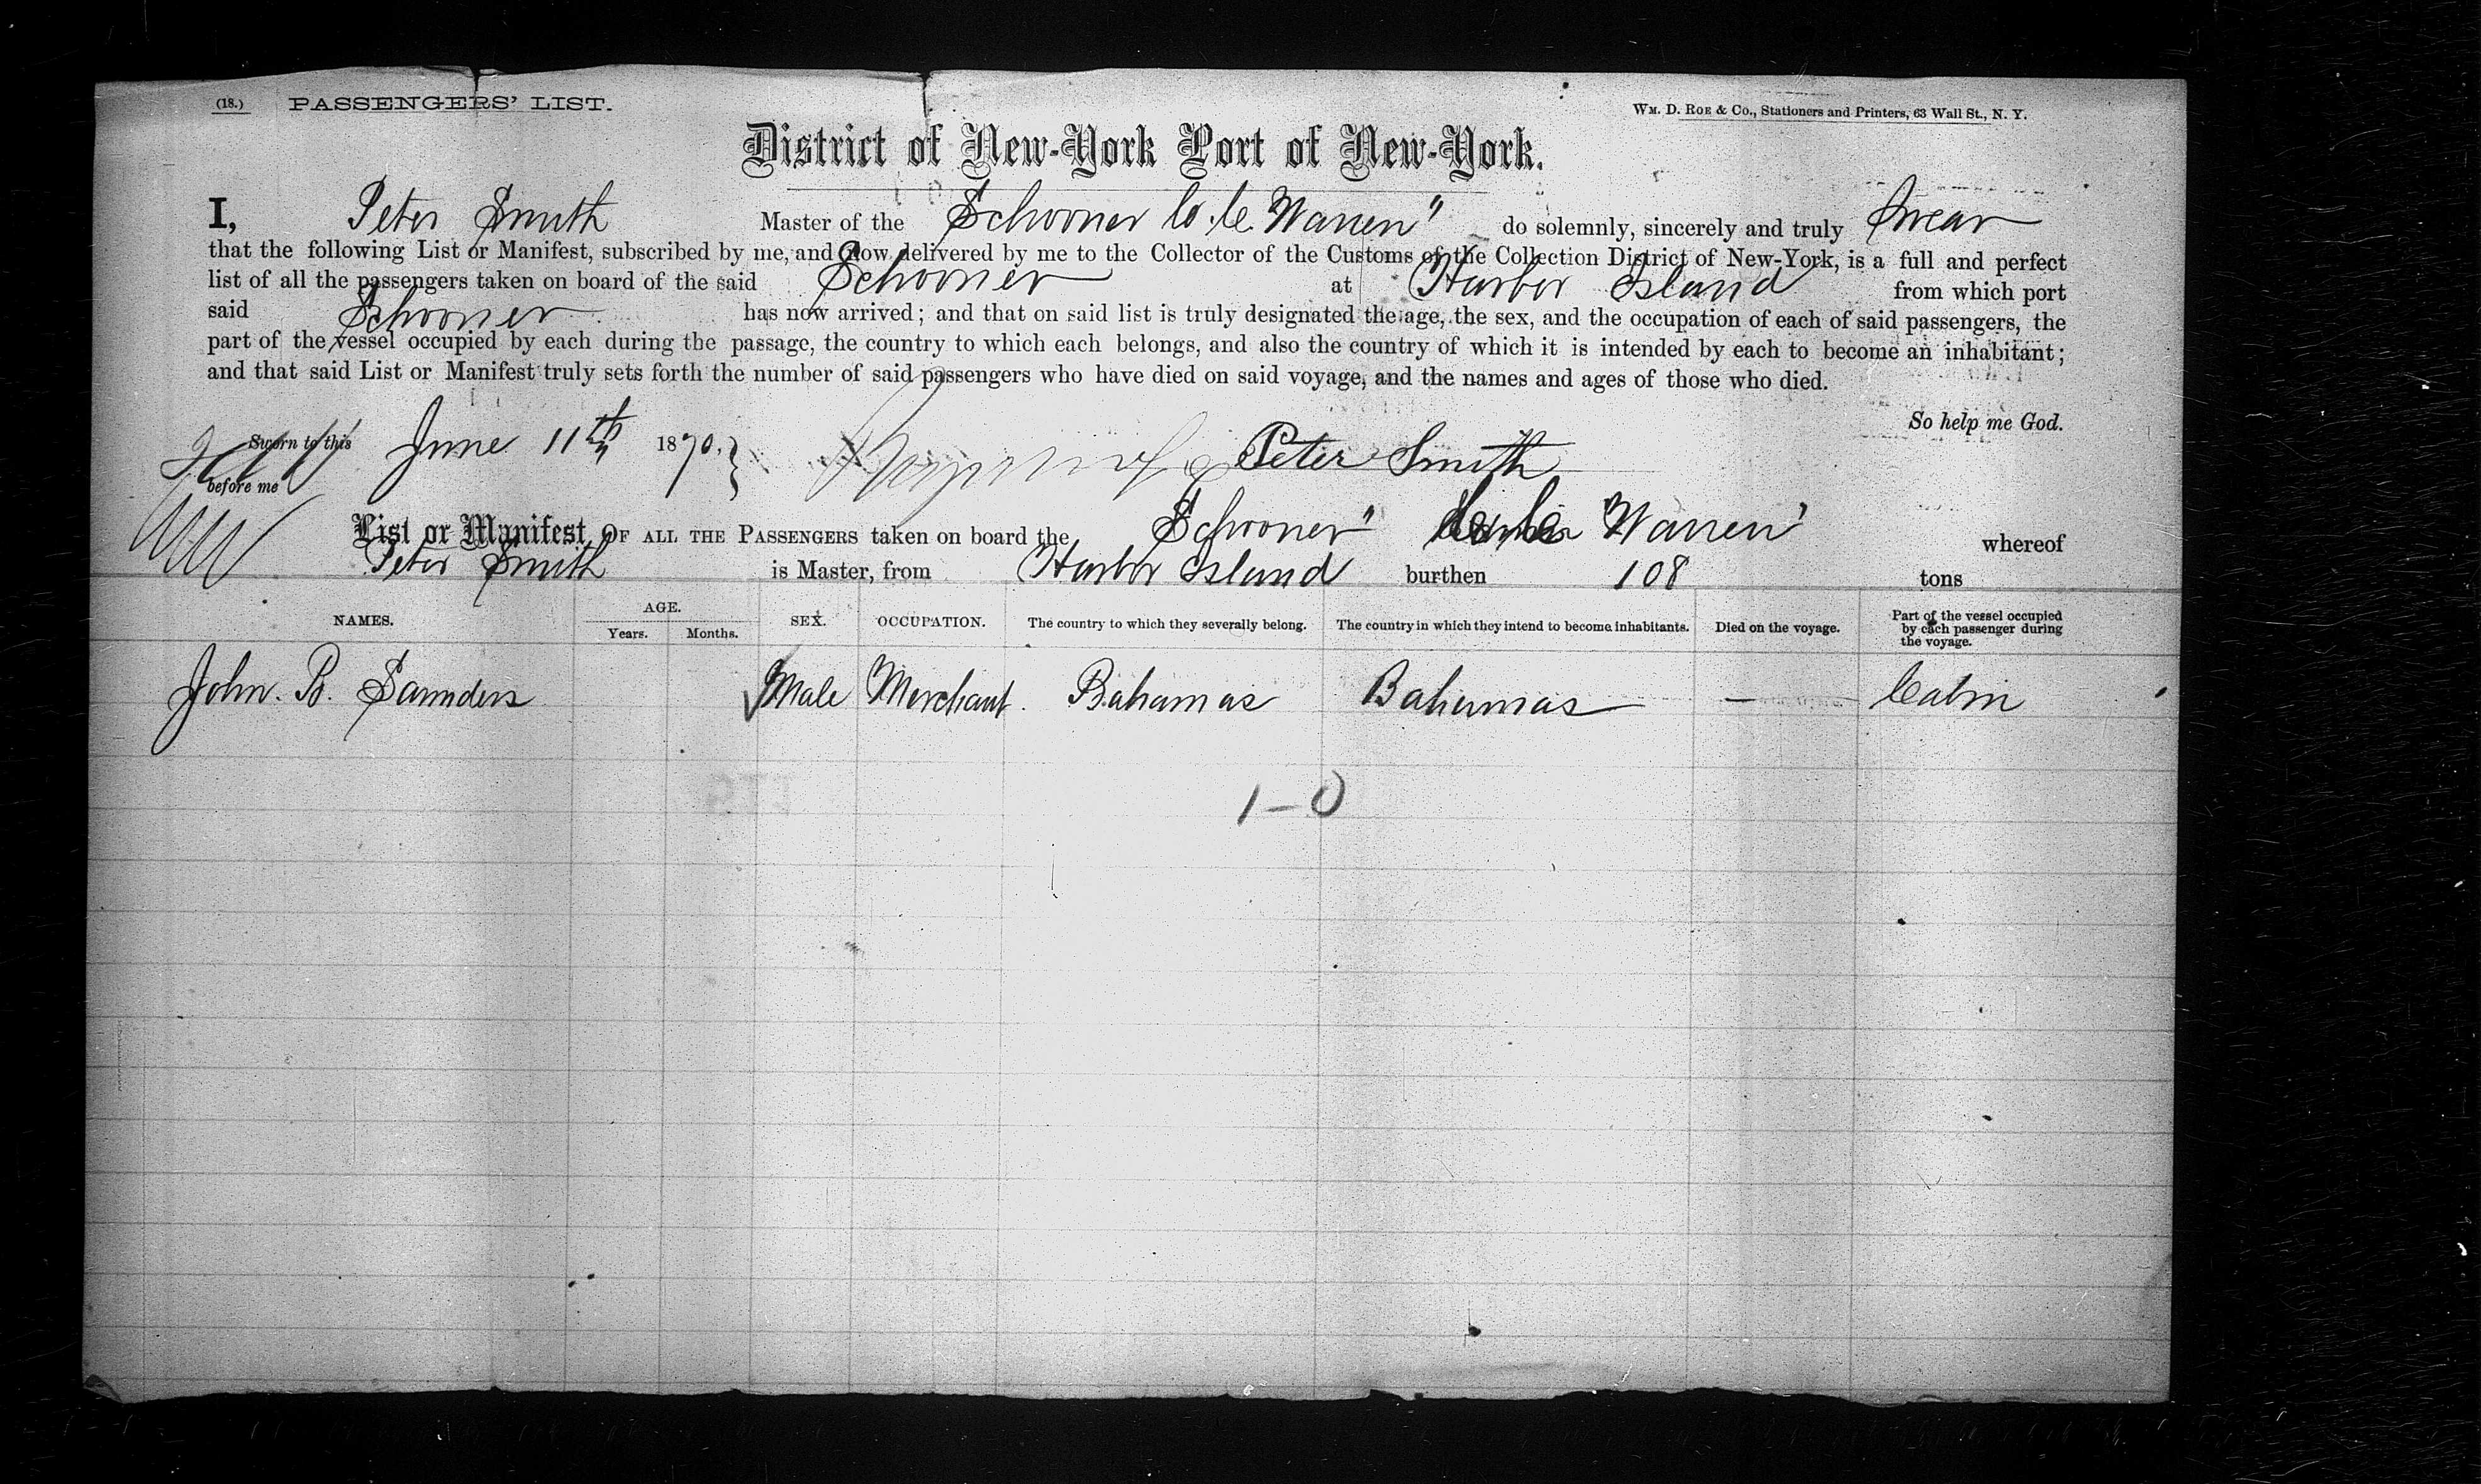 (18.) PASSENGERS' LIST.
WM. D. ROE & CO., Stationers and Printers, 63 Wall St., N. Y.
District of New-York Port of New-York.
I, Peter Smith Master of the Schooner C. C. Warren" do solemnly, sincerely and truly Swear
that the following List or Manifest, subscribed by me, and now delivered by me to the Collector of the Customs of the Collection District of New-York, is a full and perfect
list of all the passengers taken on board of the said Schooner at Harbor Island from which port
said Schooner has now arrived; and that on said list is truly designated the age, the sex, and the occupation of each of said passengers, the
part of the vessel occupied by each during the passage, the country to which each belongs, and also the country of which it is intended by each to become an inhabitant;
and that said List or Manifest truly sets forth the number of said passengers who have died on said voyage, and the names and ages of those who died.
So help me God.
Sworn to this June 11th 1870. Peter Smith
before me
List or Manifest OF ALL THE PASSENGERS taken on board the Schooner" Warren" whereof
Peter Smith is Master, from Harbor Island burthen 108 tons
NAMES. AGE. Years. Months. SEX. OCCUPATION. The country to which they severally belong. The country in which they intend to become inhabitants. Died on the voyage. Part of the vessel occupied by each passenger during the voyage.
John. B. Saunders Male Merchant. Bahamas Bahamas — Cabin
1-0